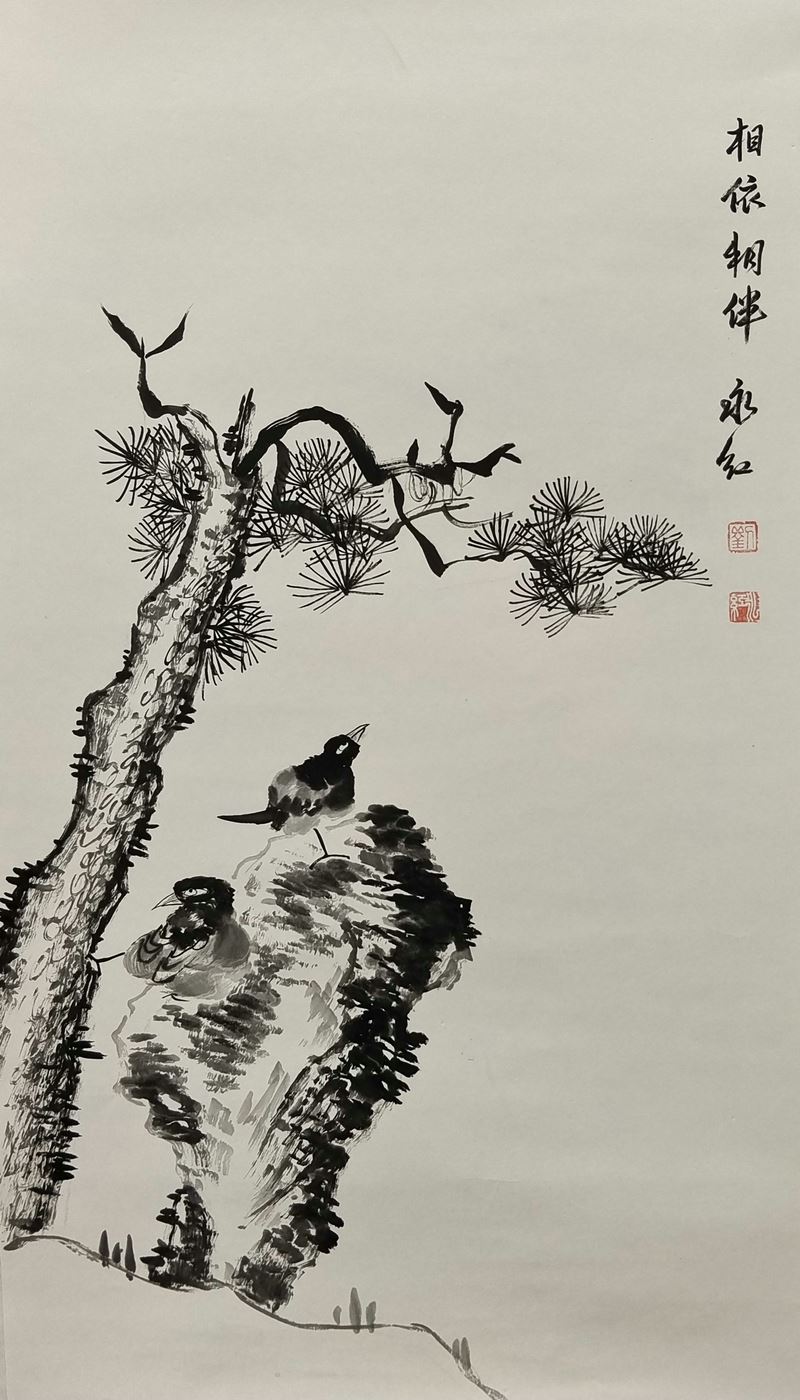 相依相伴 永红
劉